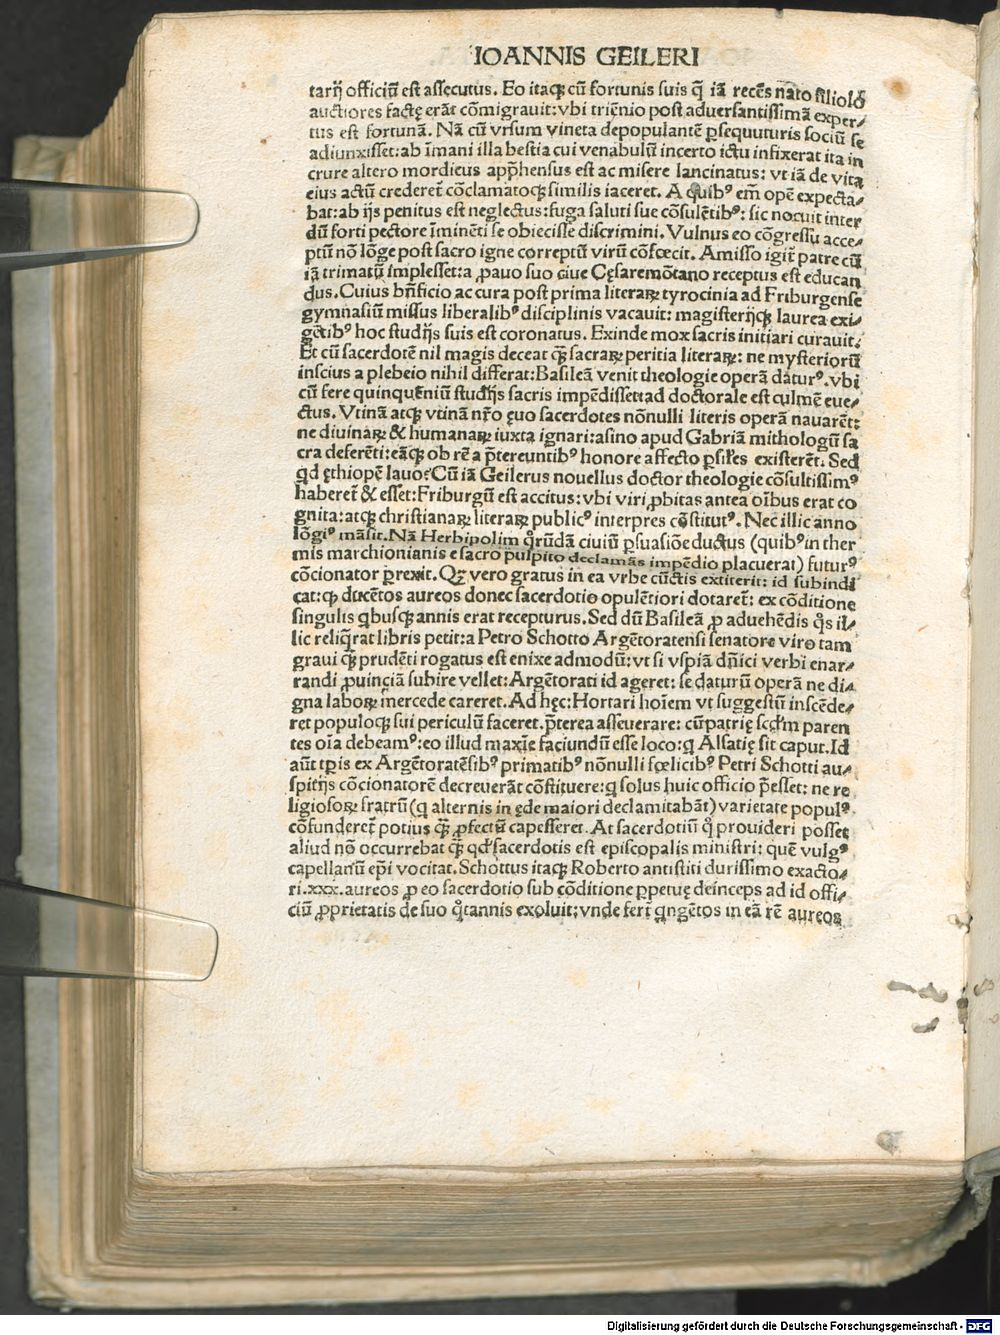 IOANNIS GEILERI
tarij officiũ est assecutus. Eo itaqꝫ cũ fortunis suis q̃ iã recẽs nato filiolo
auctiores factę erãt cõmigrauit: vbi triẽnio post aduersantissimã exper⸗
tus est fortunã. Nã cũ vrsum vineta depopulantẽ ꝑsequuturis sociũ se
adiunxisset: ab ĩmani illa bestia cui venabulũ incerto ictu infixerat ita in
crure altero mordicus app̃hensus est ac misere lancinatus: vt iã de vita
eius actũ crederet̃ cõclamatoqꝫ similis iaceret. A quibꝰ em̃ opẽ expecta⸗
bat: ab ijs penitus est neglectus: fuga saluti sue cõsulẽtibꝰ: sic nocuit inter
dũ forti pectore ĩminẽti se obiecisse discrimini. Vulnus eo cõgressu acce⸗
ptũ nõ lõge post sacro igne correptũ virũ cõfœcit. Amisso igit̃ patre cũ
iã trimatũ implesset: a ꝓauo suo ciue Cęsaremõtano receptus est educan
dus. Cuius bñficio ac cura post prima literaꝝ tyrocinia ad Friburgense
gymnasiũ missus liberalibꝰ disciplinis vacauit: magisterijqꝫ laurea exi⸗
gẽtibꝰ hoc studijs suis est coronatus. Exinde mox sacris initiari curauit.
Et cũ sacerdotẽ nil magis deceat q̃ꝫ sacraꝝ peritia literaꝝ: ne mysteriorũ
inscius a plebeio nihil differat: Basileã venit theologie operã daturꝰ. vbi
cũ fere quinquẽniũ studijs sacris impẽdisset: ad doctorale est culmẽ eue⸗
ctus. Vtinã atqꝫ vtinã nr̃o ęuo sacerdotes nõnulli literis operã nauarẽt:
ne diuinaꝝ & humanaꝝ iuxta ignari: asino apud Gabriã mithologũ sa
cra deferẽti: eãqꝫ ob rẽ a p̃tereuntibꝰ honore affecto ꝑsiles existerẽt. Sed
qd ęthiopẽ lauo? Cũ iã Geilerus nouellus doctor theologie cõsultissimꝰ
haberet̃ & esset: Friburgũ est accitus: vbi viri ꝓbitas antea oĩbus erat co
gnita: atqꝫ christianaꝝ literaꝝ publicꝰ interpres cõstitutꝰ. Nec illic anno
lõgiꝰ mãsit. Nã Herbipolim q̃rũdã ciuiũ ꝑsuasiõe ductus (quibꝰ in ther
mis marchionianis e sacro pulpito declamãs impẽdio placuerat) futurꝰ
cõcionator ꝑrexit. Qꝫ vero gratus in ea vrbe cũctis extiterit: id subindi
cat: ꝙ ducẽtos aureos donec sacerdotio opulẽtiori dotaret̃: ex cõditione
singulis qbusqꝫ annis erat recepturus. Sed dũ Basileã ꝓ aduehẽdis q̃s il⸗
lic reliq̃rat libris petit: a Petro Schotto Argẽtoratensi senatore viro tam
graui q̃ꝫ prudẽti rogatus est enixe admodũ: vt si vspiã dñici verbi enar⸗
randi ꝓuinciã subire vellet: Argẽtorati id ageret: se daturũ operã ne di⸗
gna laboꝝ mercede careret. Ad hęc: Hortari hoĩem vt suggestũ inscẽde⸗
ret populoqꝫ sui periculũ faceret. p̃terea asseuerare: cũ patrię scd̃m paren
tes oĩa debeamꝰ: eo illud maxĩe faciundũ esse loco: q Alsatię sit caput. Id
aũt tꝑis ex Argẽtoratẽsibꝰ primatibꝰ nõnulli fœlicibꝰ Petri Schotti au⸗
spitijs cõcionatorẽ decreuerãt cõstituere: q solus huic officio p̃esset: ne re
ligiosoꝝ fratrũ (q alternis in ęde maiori declamitabãt) varietate populꝰ
cõfunderet̃ potius q̃ꝫ ꝓfectũ capesseret. At sacerdotiũ q̃ prouideri posset
aliud nõ occurrebat q̃ꝫ qd̃ sacerdotis est episcopalis ministri: quẽ vulgꝰ
capellanũ ep̃i vocitat. Schottus itaqꝫ Roberto antistiti durissimo exacto⸗
ri .xxx. aureos ꝓ eo sacerdotio sub cõditione ꝑpetuę deinceps ad id offi⸗
ciũ ꝓprietatis de suo q̃tannis exoluit: vnde fert̃ qngẽtos in eã rẽ aureos
Digitalisierung gefördert durch die Deutsche Forschungsgemeinschaft - DFG